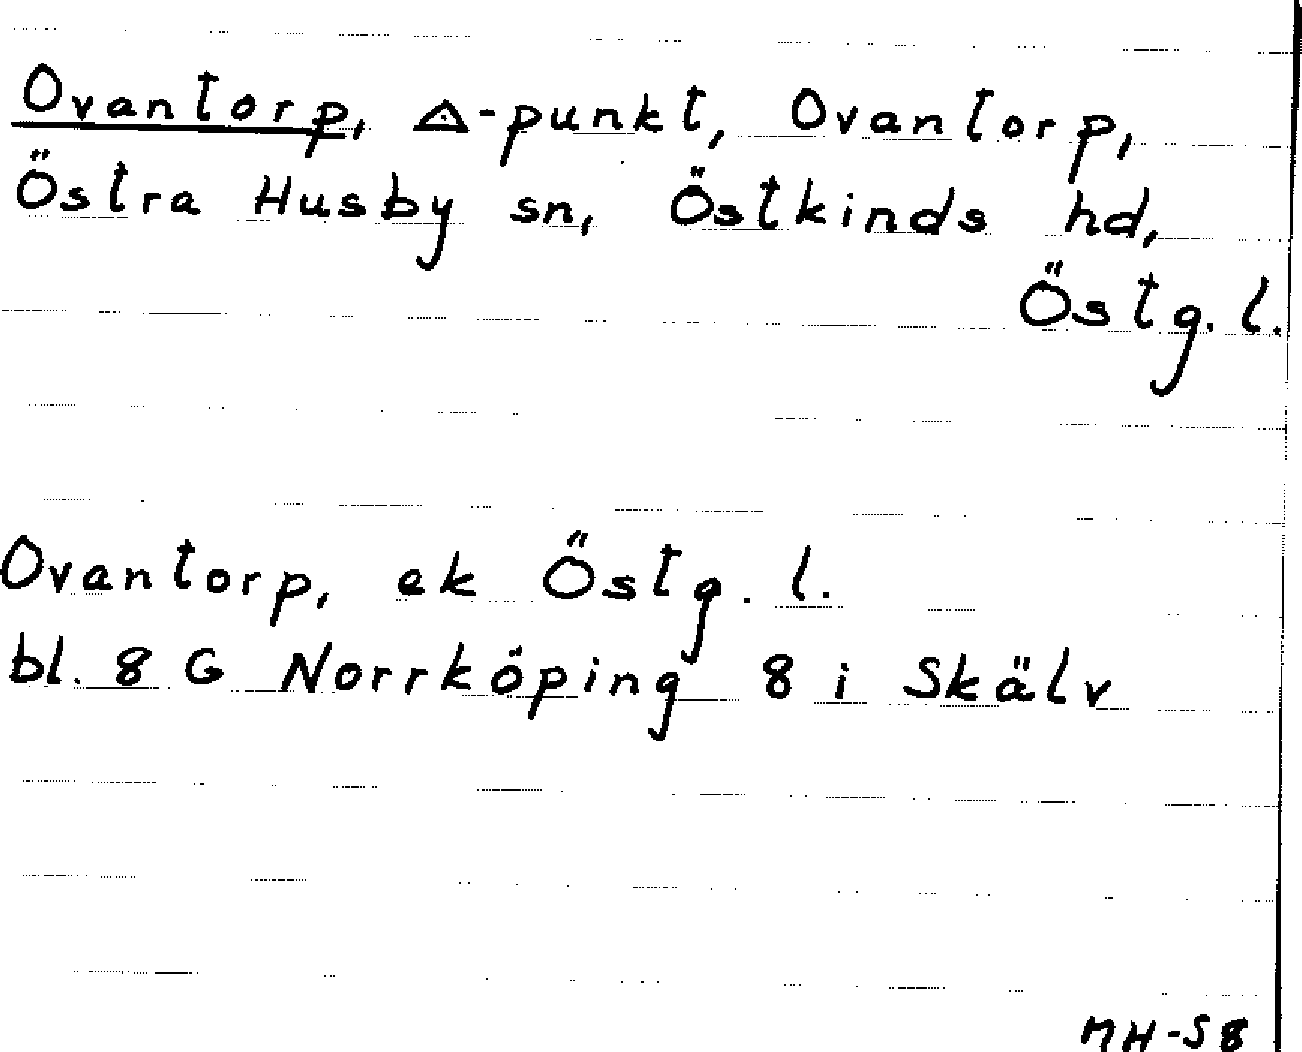 Ovantorp, Δ-punkt, Ovantorp,
Östra Husby sn, Östkinds hd,
Östg. l.
Ovantorp, ek Östg. l.
bl. 8 G Norrköping 8 i Skälv
MH-58